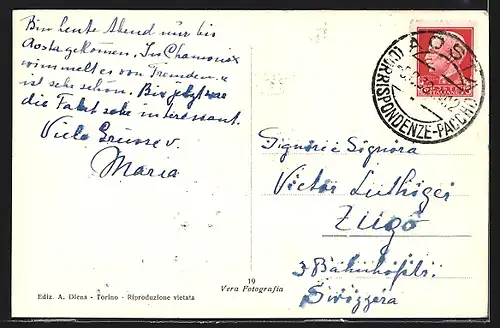 Bin heute Abend nur bis
Aosta gekommen. "In Chamonix
wimmelt es von Fremden."
ist sehr schön. Bis jetzt war
die Fahrt sehr interessant.
Viele Grüsse v.
Maria
AOSTA
(CORRISPONDENZE-PACCHI)
Signori é Signora
Victor Lüthiger
Zugo
3 Bahnhofstr.
Svizzera
19
Vera Fotografia
Ediz. A. Diena - Torino - Riproduzione vietata